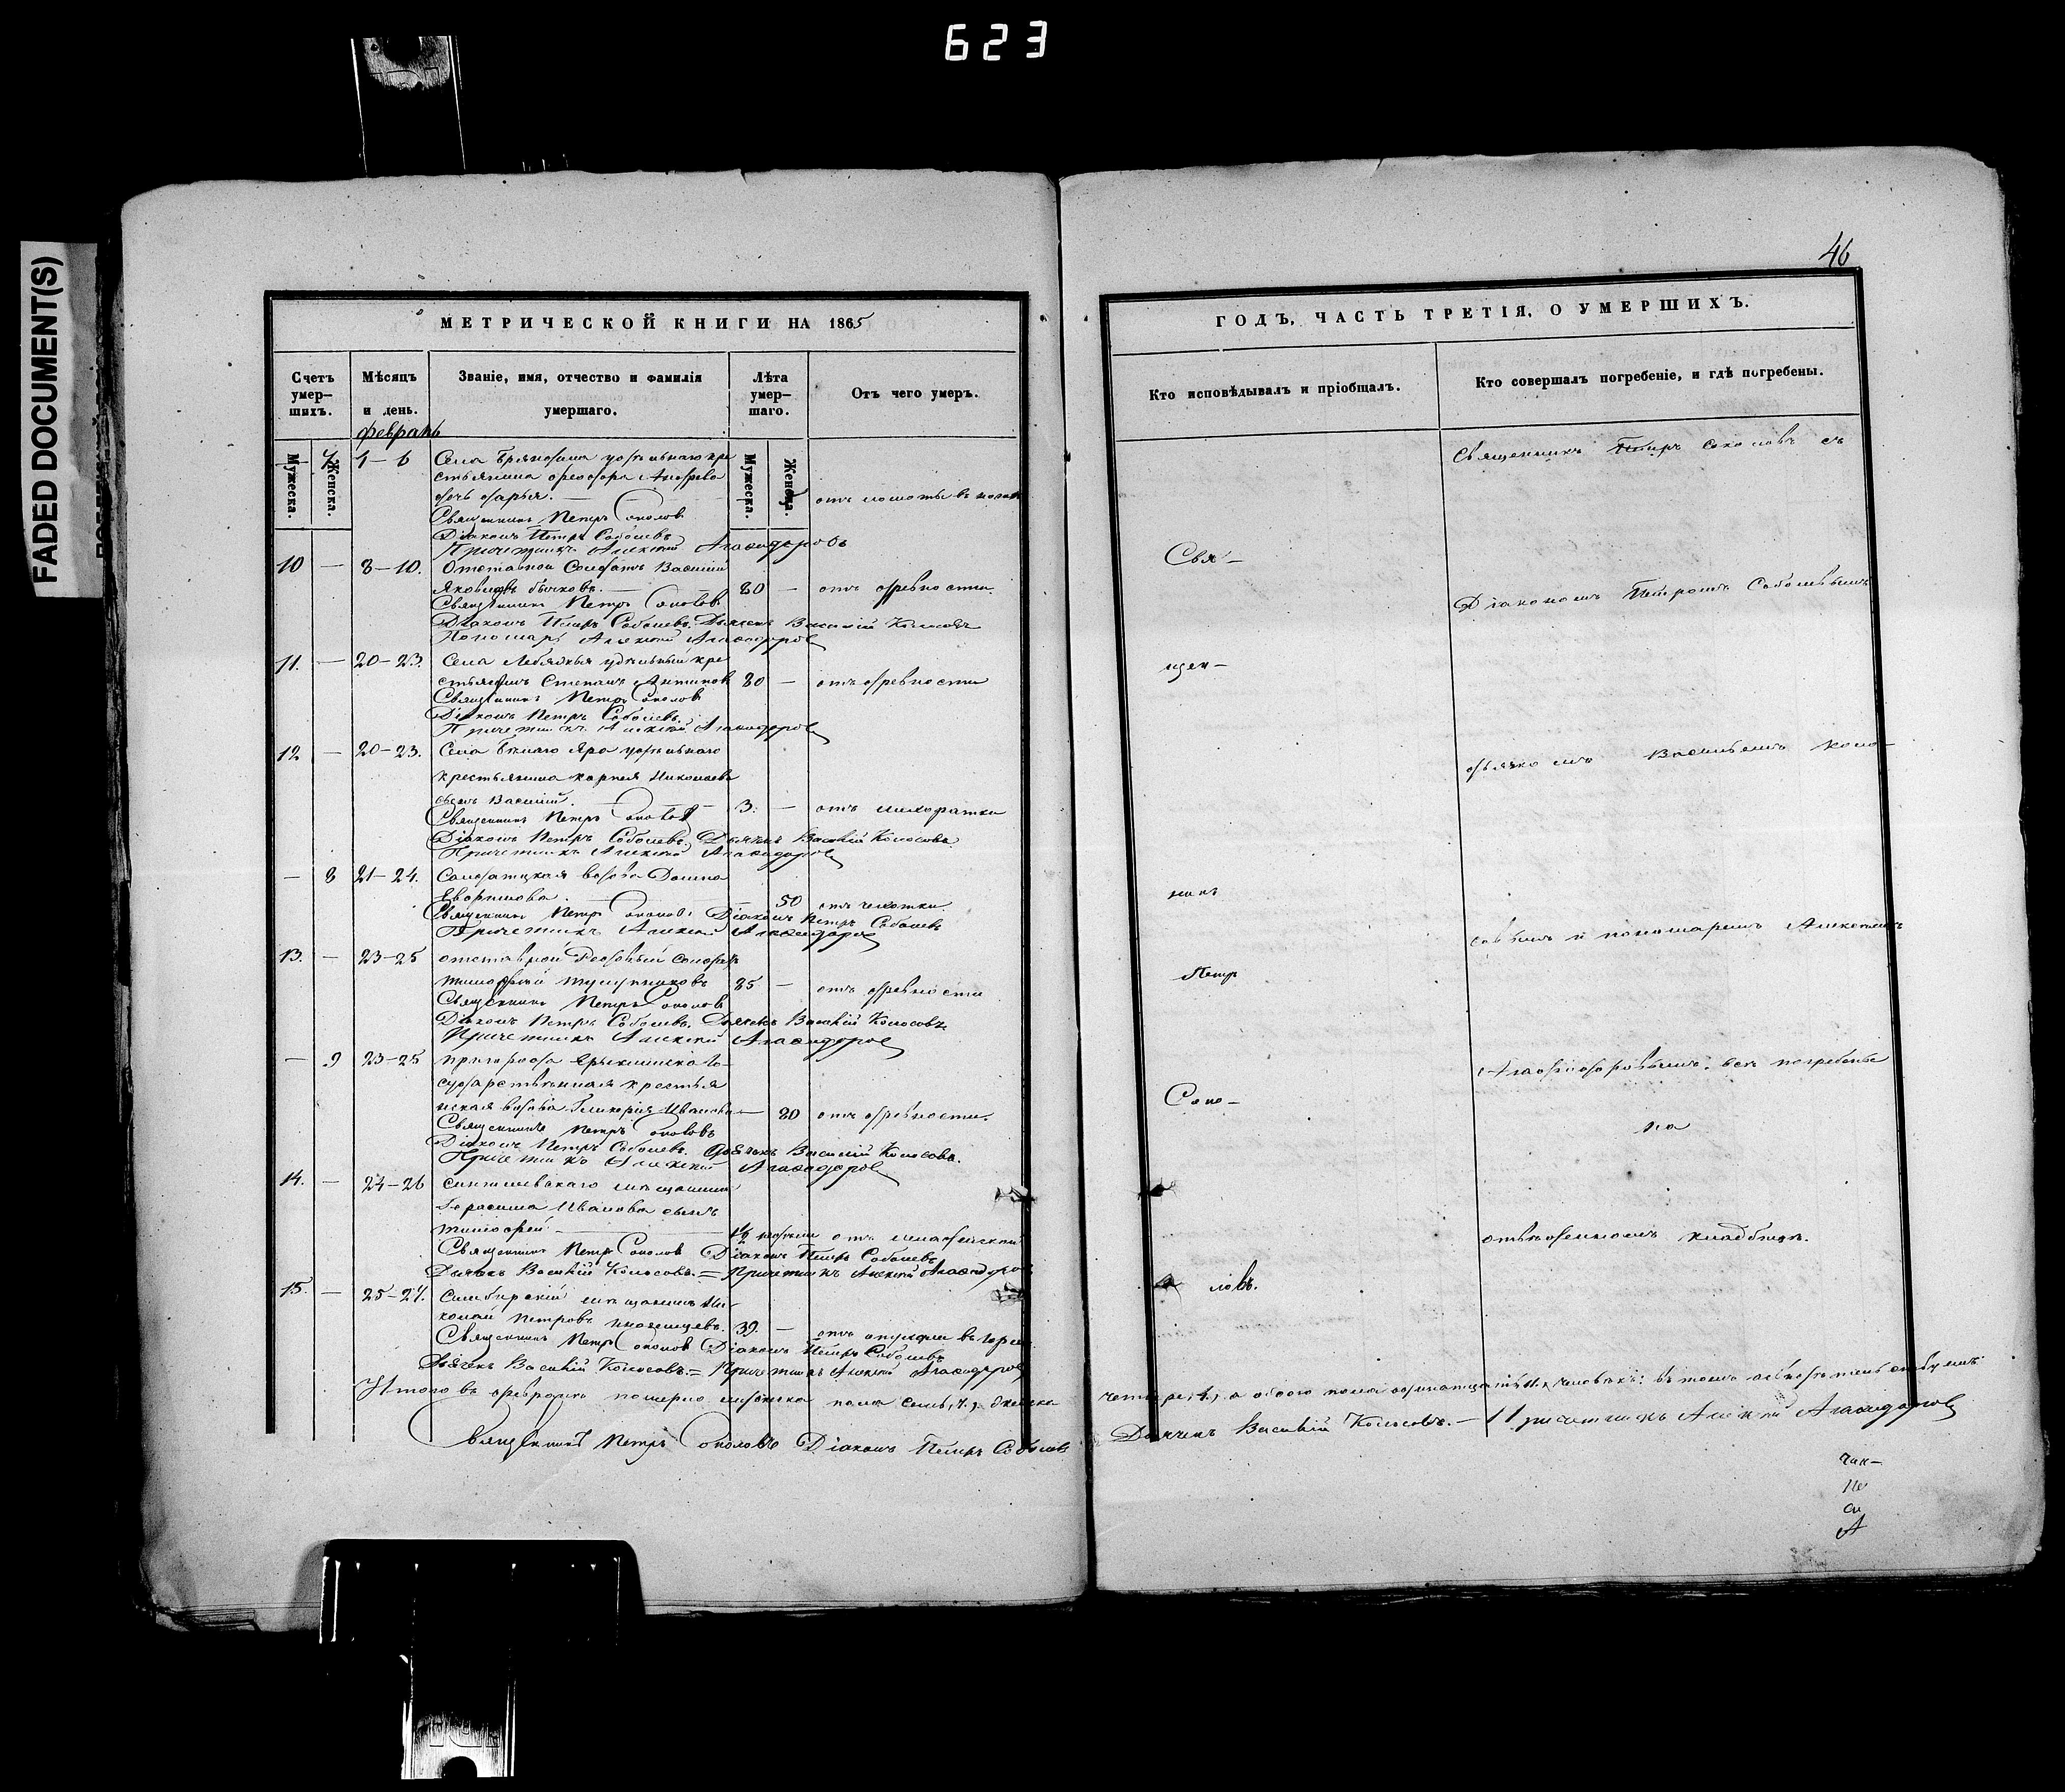 623
FADED DOCUMENT(S)
46
МЕТРИЧЕСКОЙ КНИГИ НА 1865
Счетъ умер-шихъ.
Мѣсяцъ и день.
Званіе, имя, отчество и фамилія умершаго.
Лѣта умер-шаго.
Отъ чего умеръ.
Мужеска.
Женска.
Мужеска.
Женска.
февраль
7 4 – 6 Села удѣльнаго кре
стьянина Ѳеодора Андреева
дочь Дарья. —
Священникъ Петръ Соколовъ
Діаконъ Петръ Соболевъ
Причетникъ Алексѣй Агаѳодоровъ
10 — 8–10. Отставной Солдатъ Василій
Яковлевъ Бычковъ. — 80 — отъ древности.
Священникъ Петръ Соколовъ
Діаконъ Петръ Соболевъ. Дьячекъ Василій Колосовъ
Пономарь Алексѣй Агаѳодоровъ
11. — 20–23. Села Лебяжья удѣльный кре
стьянинъ Степанъ Антиповъ 80 — отъ древности
Священникъ Петръ Соколовъ
Діаконъ Петръ Соболевъ.
Причетникъ Алексѣй Агаѳодоровъ
12 — 20–23. Села Бѣлаго Яра удѣльнаго
крестьянина Карпея Николаева
сынъ Василій. — 3. — отъ лихоратки
Священникъ Петръ Соколовъ
Діаконъ Петръ Соболевъ. Дьячекъ Василій Колосовъ
Причетникъ Алексѣй Агаѳодоровъ
— 8 21–24. Солдатская вдова Домна
— 50 отъ чехотки.
Священникъ Петръ Соколовъ Діаконъ Петръ Соболевъ
Причетникъ Алексѣй Агаѳодоровъ
13. — 23–25 отставной Рядовый Солдатъ
Тимофей 85 — отъ древности
Священникъ Петръ Соколовъ
Діаконъ Петръ Соболевъ. Дьячекъ Василій Колосовъ
Причетникъ Алексѣй Агаѳодоровъ
— 9 23–25 пригорода Ерыклинска Го-
сударственная крестья
нская вдова Гликерія Иванова — 80 отъ древности.
Священникъ Петръ Соколовъ
Діаконъ Петръ Соболевъ. Дьячекъ Василій Колосовъ.
Причетникъ Алексѣй Агаѳодоровъ
14. — 24–26 мѣщанина
Герасима Иванова сынъ
Тимофей — недѣли отъ
Священникъ Петръ Соколовъ Діаконъ Петръ Соболевъ
Дьячекъ Василій Колосовъ. = Причетникъ Алексѣй Агаѳодоровъ
15. — 25–27. Симбирскій мѣщанинъ Ни-
колай Петровъ 39. — отъ опухоли въ горлѣ
Священникъ Петръ Соколовъ Діаконъ Петръ Соболевъ
Дьячекъ Василій Колосовъ. = Причетникъ Алексѣй Агаѳодоровъ
Итого въ февралѣ померло мужеска пола семь, 7, женска
Священникъ Петръ Соколовъ Діаконъ Петръ Соболевъ
ГОДЪ, ЧАСТЬ ТРЕТІЯ, О УМЕРШИХЪ.
Кто исповѣдывалъ и пріобщалъ.
Кто совершалъ погребеніе, и гдѣ погребены.
Свя-
щен-
никъ
Петр
Соко-
ловъ.
Священникъ Петръ Соколовъ съ
Діакономъ Петромъ Соболевымъ
дьячкомъ Васильемъ Коло-
совымъ и пономаремъ Алексѣемъ
Агаѳодоровымъ. всѣ погребены
на
отведенномъ кладбищѣ.
четыре, 4, а обоего пола одинатцать 11, человѣкъ: въ томъ
Дьячекъ Василій Колосовъ. — Причетникъ Алексѣй Агаѳодоровъ